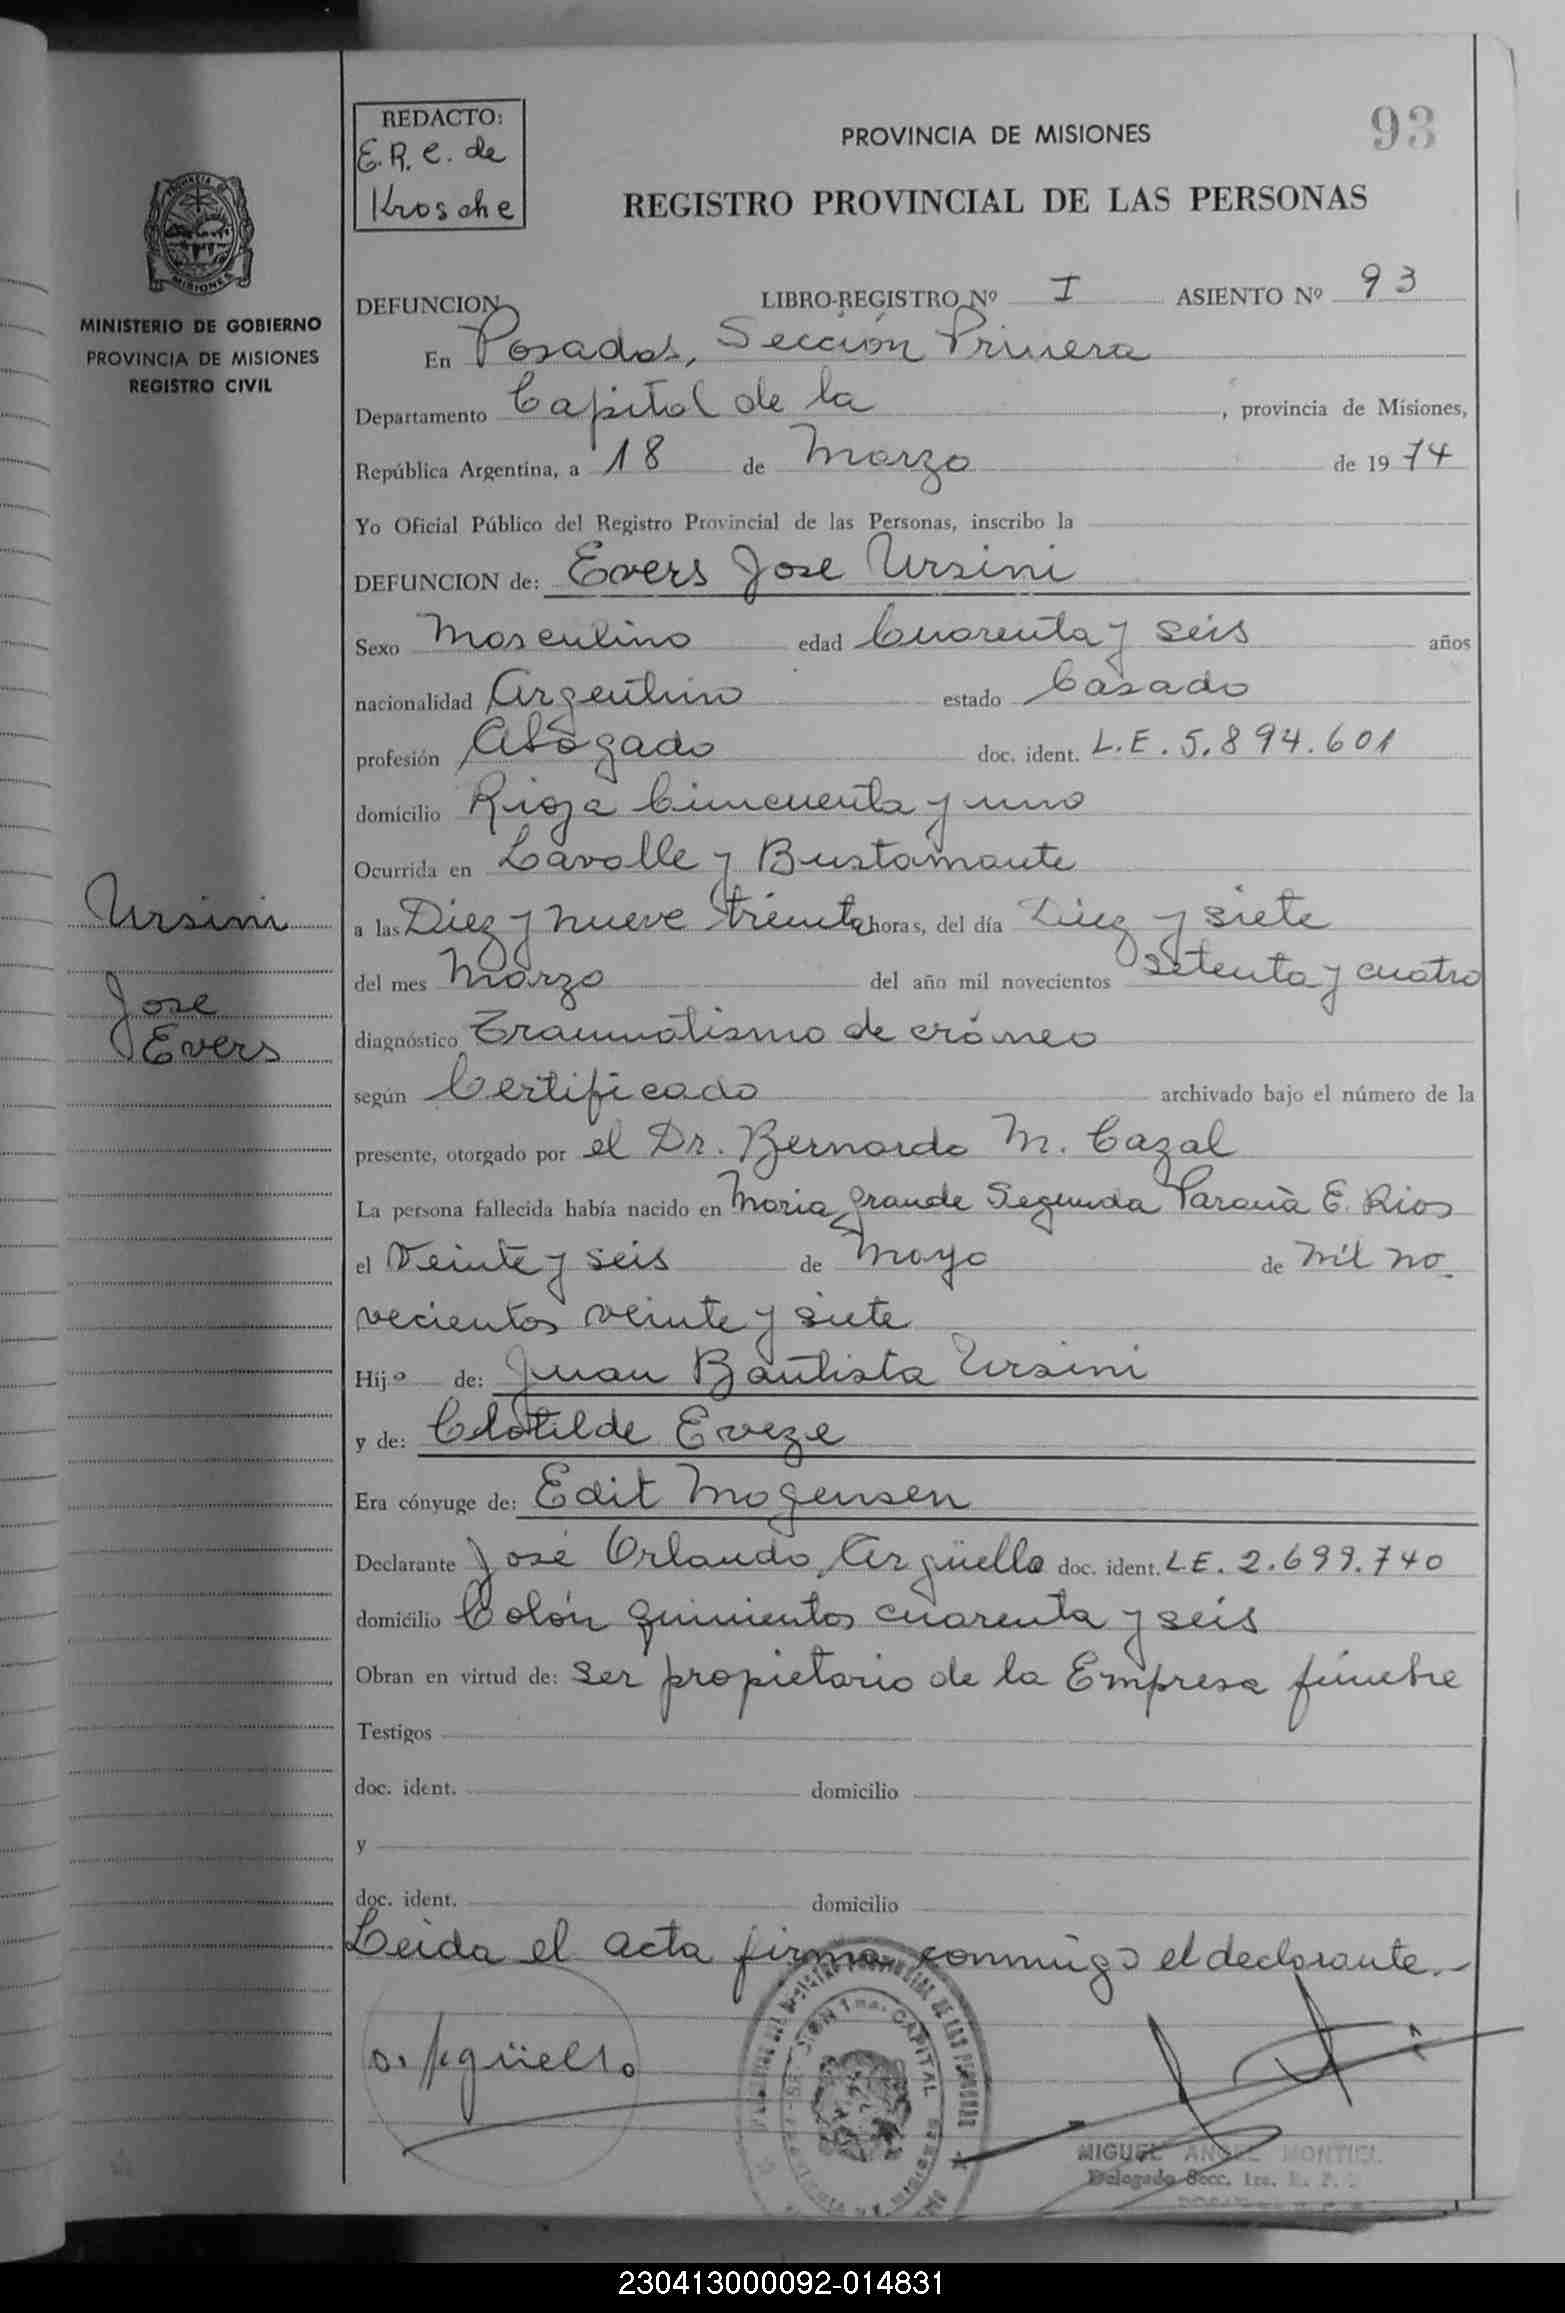 REDACTO:
E.R.C. de
Krosche
93
PROVINCIA DE MISIONES
REGISTRO PROVINCIAL DE LAS PERSONAS
PROVINCIA DE
MISIONES
MINISTERIO DE GOBIERNO
PROVINCIA DE MISIONES
REGISTRO CIVIL
DEFUNCION LIBRO-REGISTRO Nº I ASIENTO Nº 93
En Posadas, Sección Primera
Departamento Capital de la , provincia de Misiones,
República Argentina, a 18 de Marzo de 1974
Yo Oficial Público del Registro Provincial de las Personas, inscribo la
DEFUNCION de: Evers Jose Ursini
Sexo Masculino edad Cuarenta y seis años
nacionalidad Argentino estado Casado
profesión Abogado doc. ident. L.E. 5.894.601
domicilio Rioja Cincuenta y uno
Ocurrida en Lavalle y Bustamante
Ursini
Jose
Evers
a las Diez y nueve treinta horas, del día Diez y siete
del mes Marzo del año mil novecientos setenta y cuatro
diagnóstico Traumatismo de cráneo
según Certificado archivado bajo el número de la
presente, otorgado por el Dr. Bernardo M. Cazal
La persona fallecida había nacido en Maria grande Segunda Paraná E. Rios
el Veinte y seis de Mayo de mil no
vecientos veinte y siete
Hijo de: Juan Bautista Ursini
y de: Clotilde Eveze
Era cónyuge de: Edit Mogensen
Declarante José Orlando Argüello doc. ident. L.E. 2.699.740
domicilio Colón quinientos cuarenta y seis
Obran en virtud de: ser propietario de la Empresa fúnebre
Testigos
doc. ident. domicilio
y
doc. ident. domicilio
Leida el acta firma conmigo el declarante.-
O. Argüello
CAPITAL
MIGUEL ANGEL MONTIEL
Delegado Secc. 1ra. R. P.
230413000092-014831